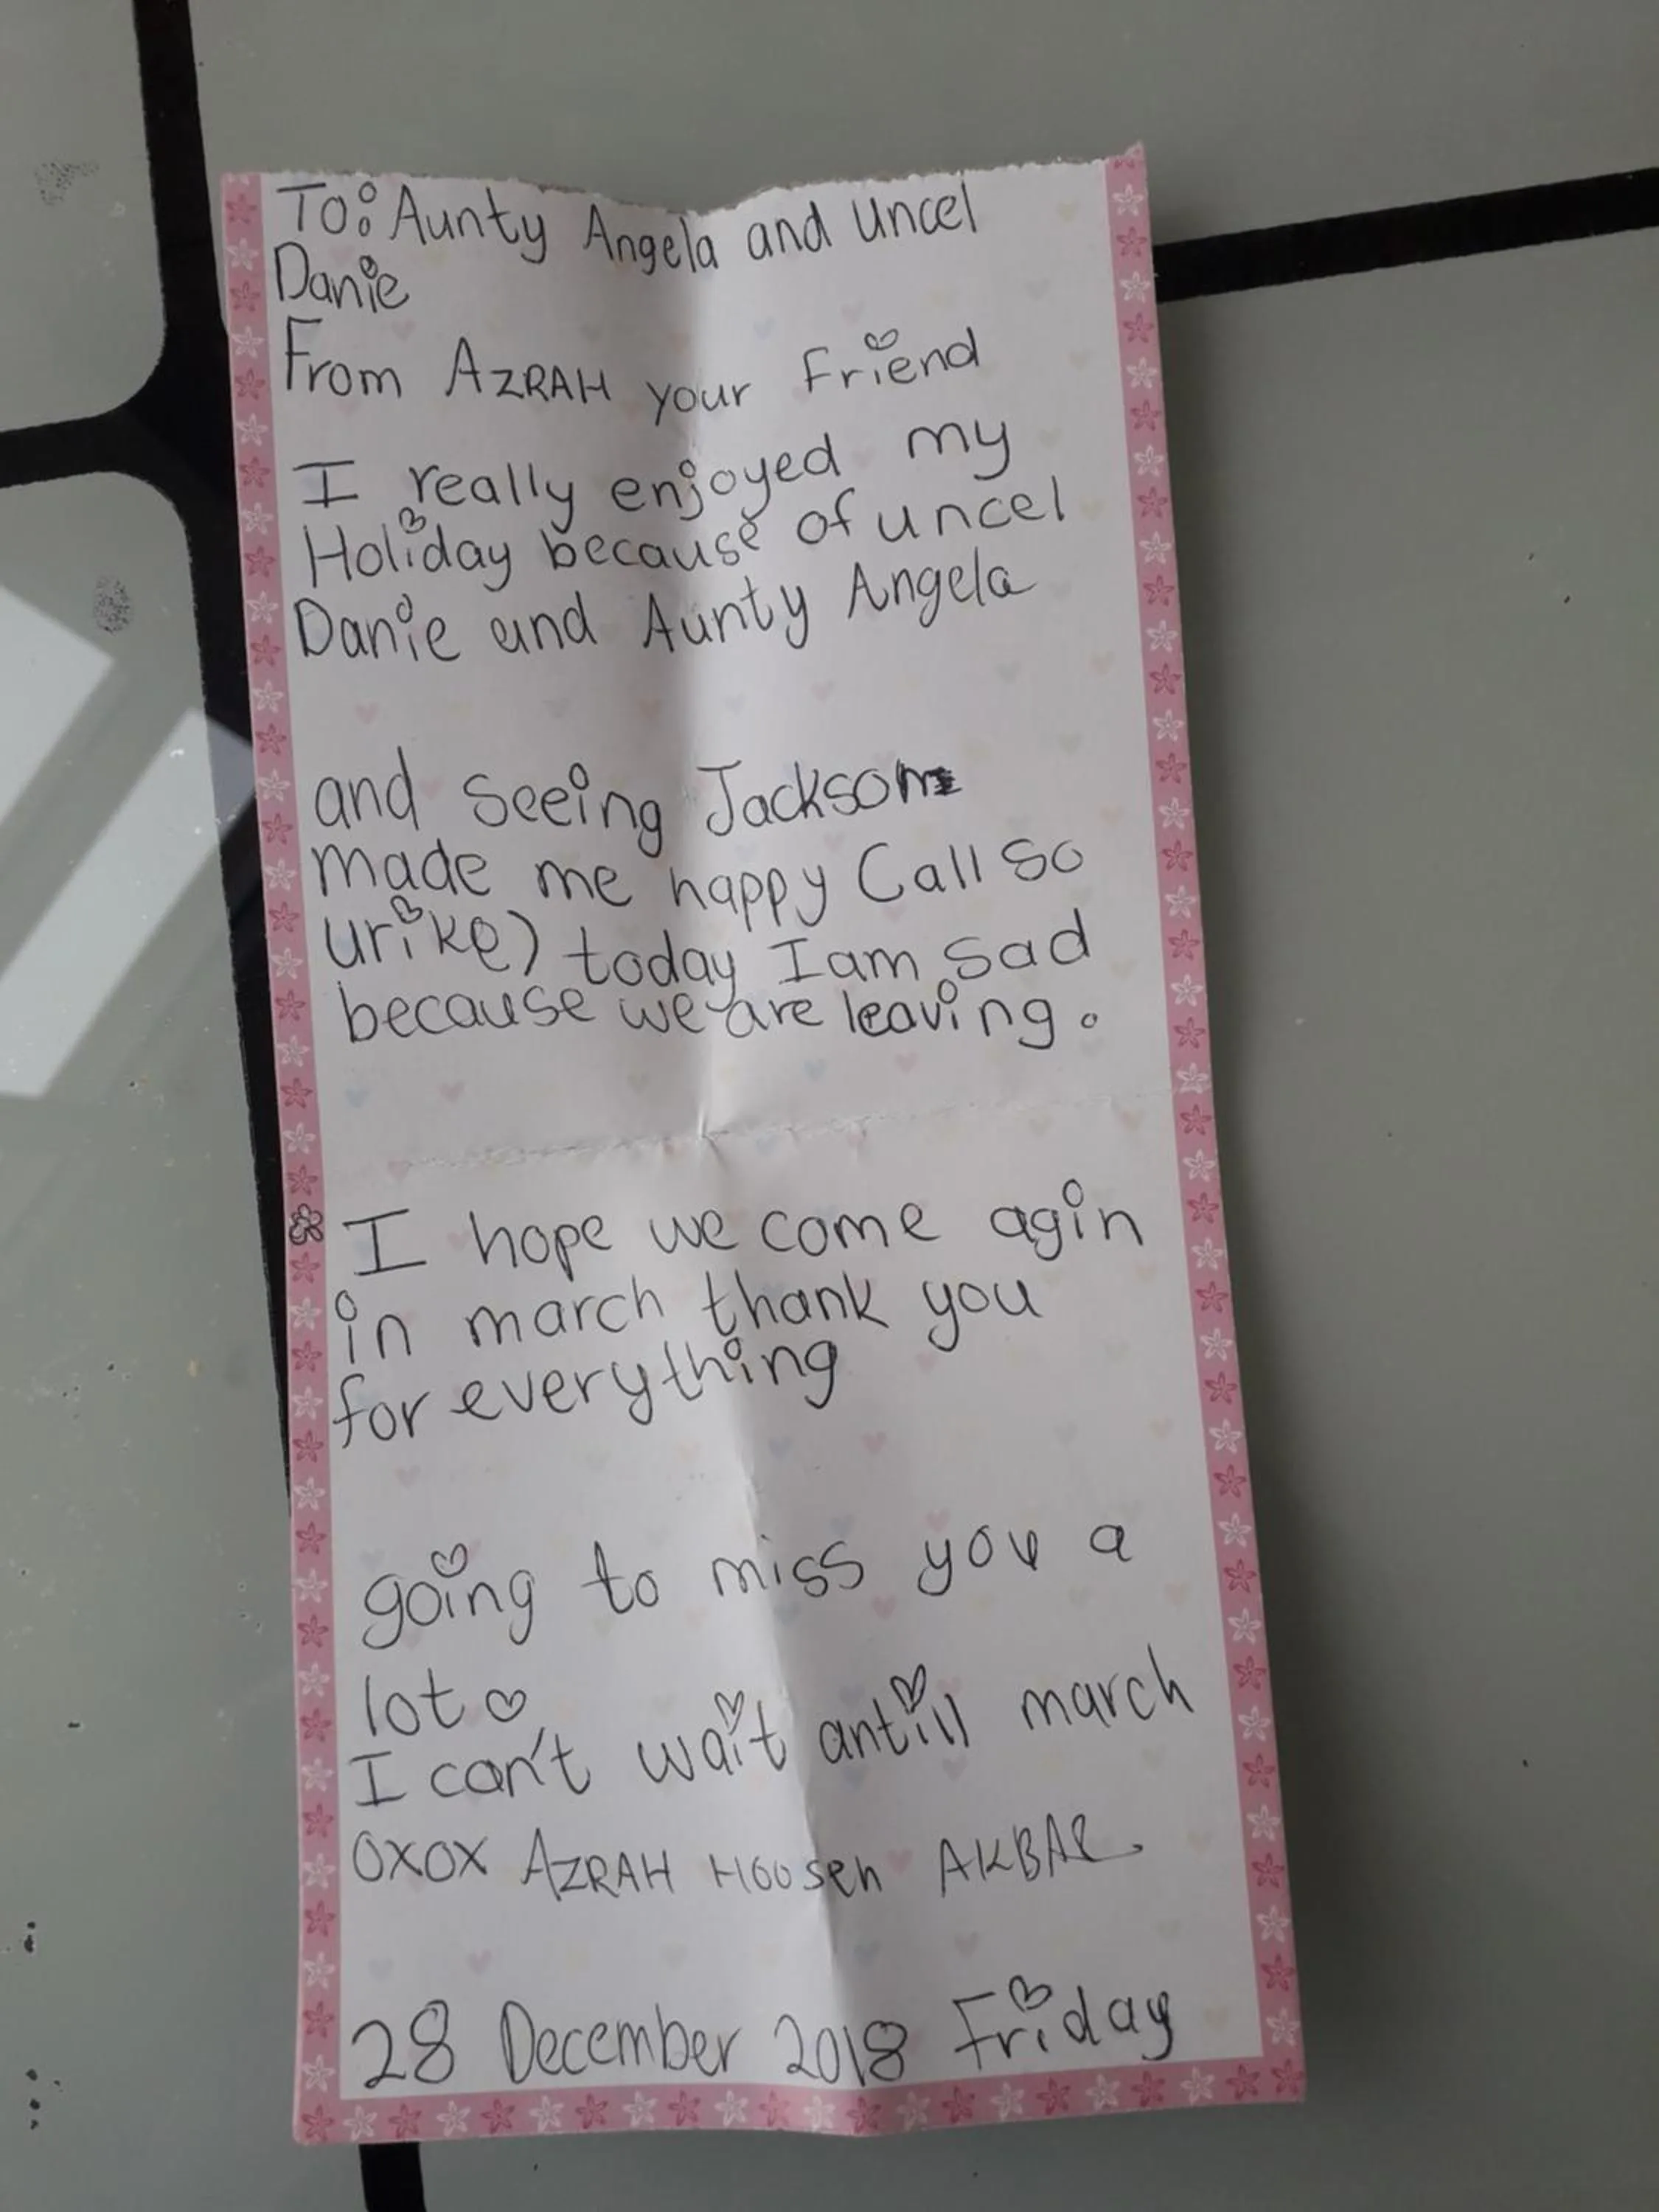 To: Aunty Angela and uncel
Danie
From AZRAH your Friend
I really enjoyed my
Holiday because of uncel
Danie and Aunty Angela
and seeing Jackson
made me happy Call so
urike) today I am sad
because we are leaving.
I hope we come agin
in march thank you
for everything
going to miss you a
lot ♡
I can't wait antill march
OXOX AZRAH Hoosen AKBAR
28 December 2018 Friday